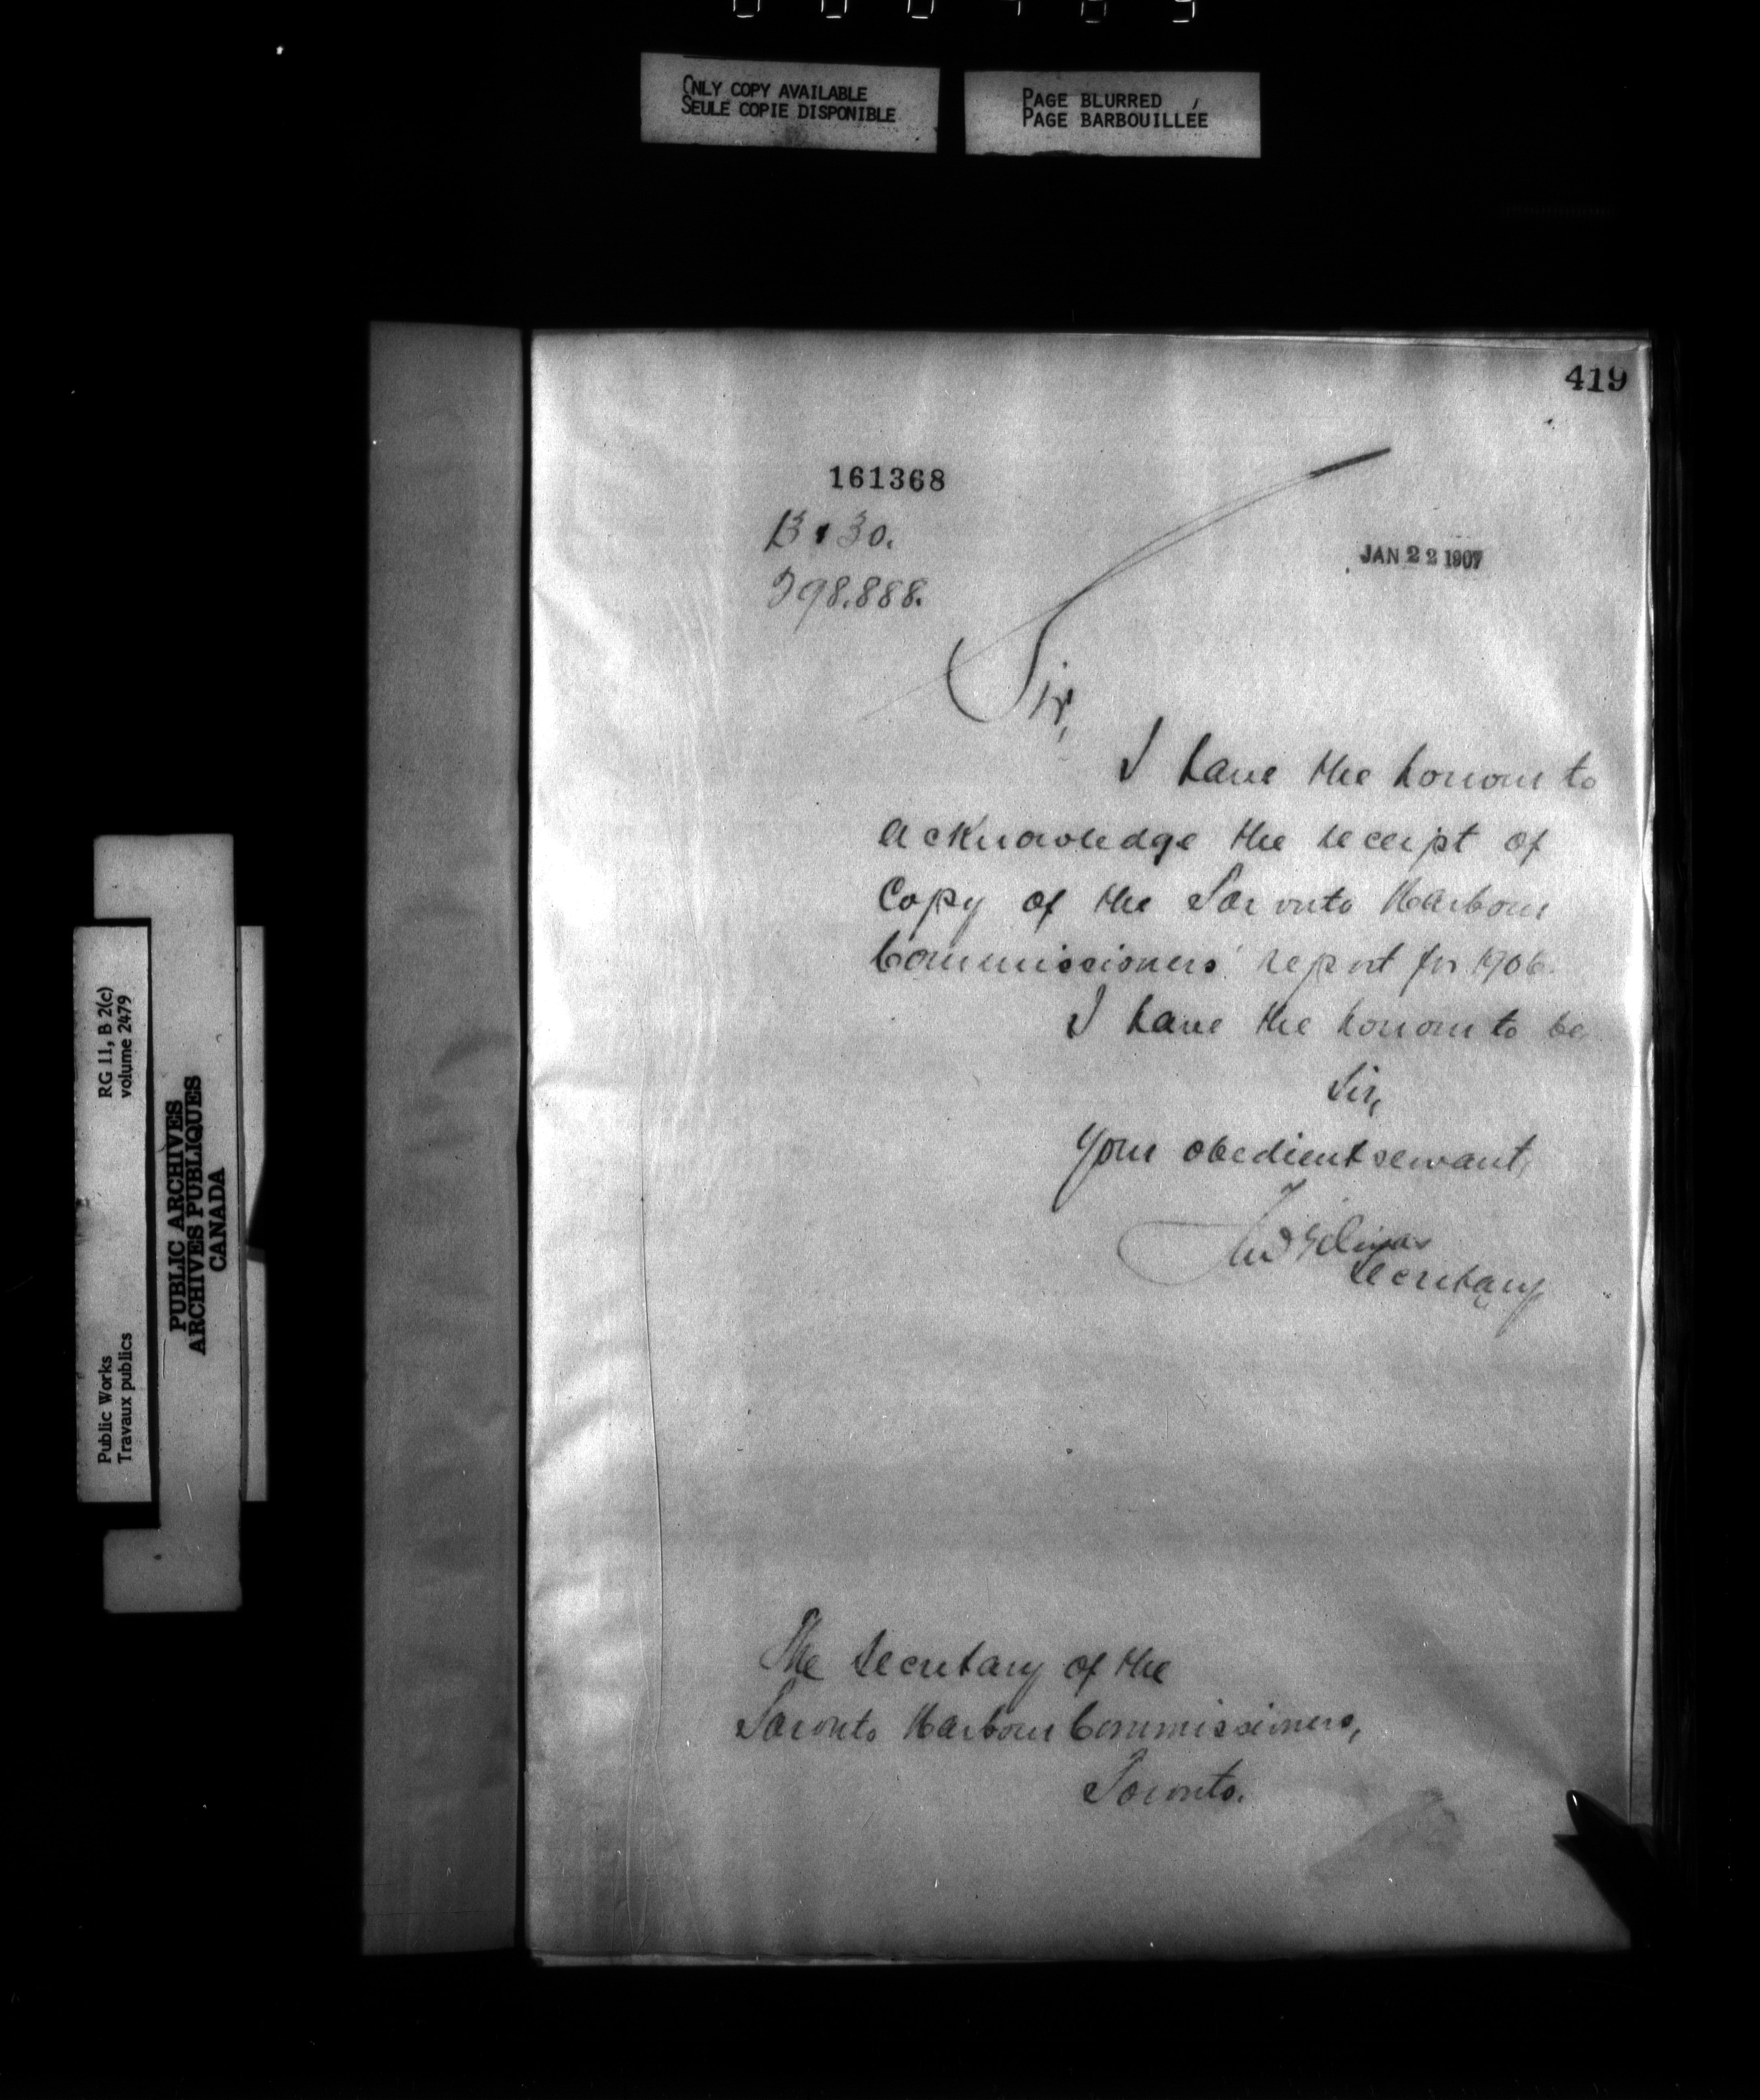 ONLY COPY AVAILABLE
SEULE COPIE DISPONIBLE
PAGE BLURRED
PAGE BARBOUILLÉE
419
161368
B. 30.
398.888.
JAN 22 1907
Sir,
I have the honour to
acknowledge the receipt of
Copy of the Toronto Harbour
Commissioners' report for 1906.
I have the honour to be
Sir,
Your obedient servant,
Fred Gélinas
Secretary
The Secretary of the
Toronto Harbour Commissioners,
Toronto.
RG 11, B 2(c)
volume 2479
Public Works
Travaux publics
PUBLIC ARCHIVES
ARCHIVES PUBLIQUES
CANADA